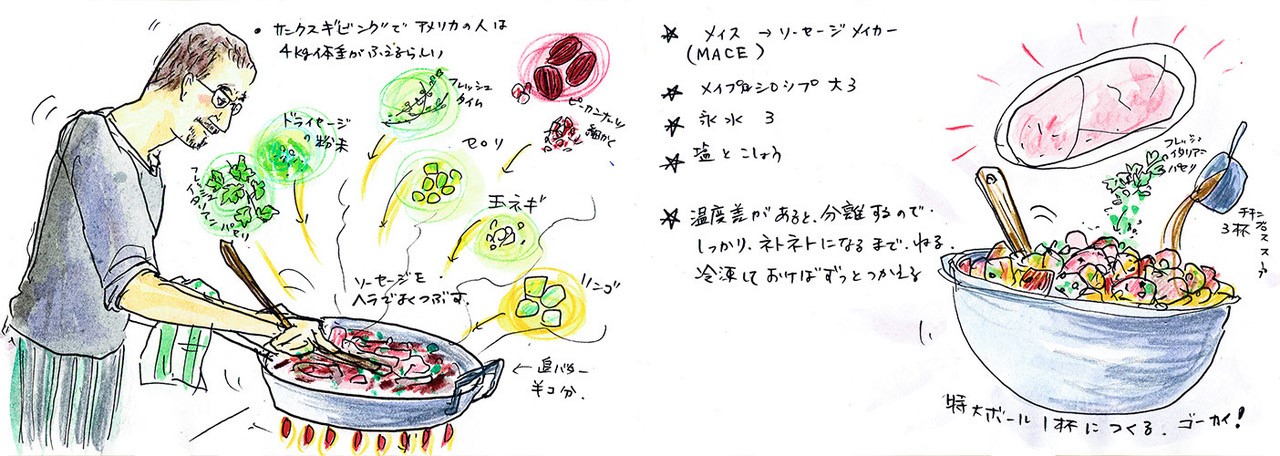 ・サンクスギビングで アメリカの人は
4kg体重がふえるらしい
フレッシュ
タイム
ピーカンナッツ
細かく
ドライセージ
の粉末
セロリ
フレッシュ
イタリアン パセリ
玉ネギ
ソーセージを
ヘラでよくつぶす.
リンゴ
← 追バター
半コ分.
☆ メイス → ソーセージメイカー
(MACE)
☆ メイプルシロップ 大3
☆ 氷水 3
☆ 塩とこしょう
☆ 温度差があると、分離するので.
しっかり、ネトネトになるまで、ねる.
冷凍しておけばずっとつかえる
フレッシュ
イタリアン
パセリ
チキン
3杯
特大ボール 1杯につくる. ゴーカイ!